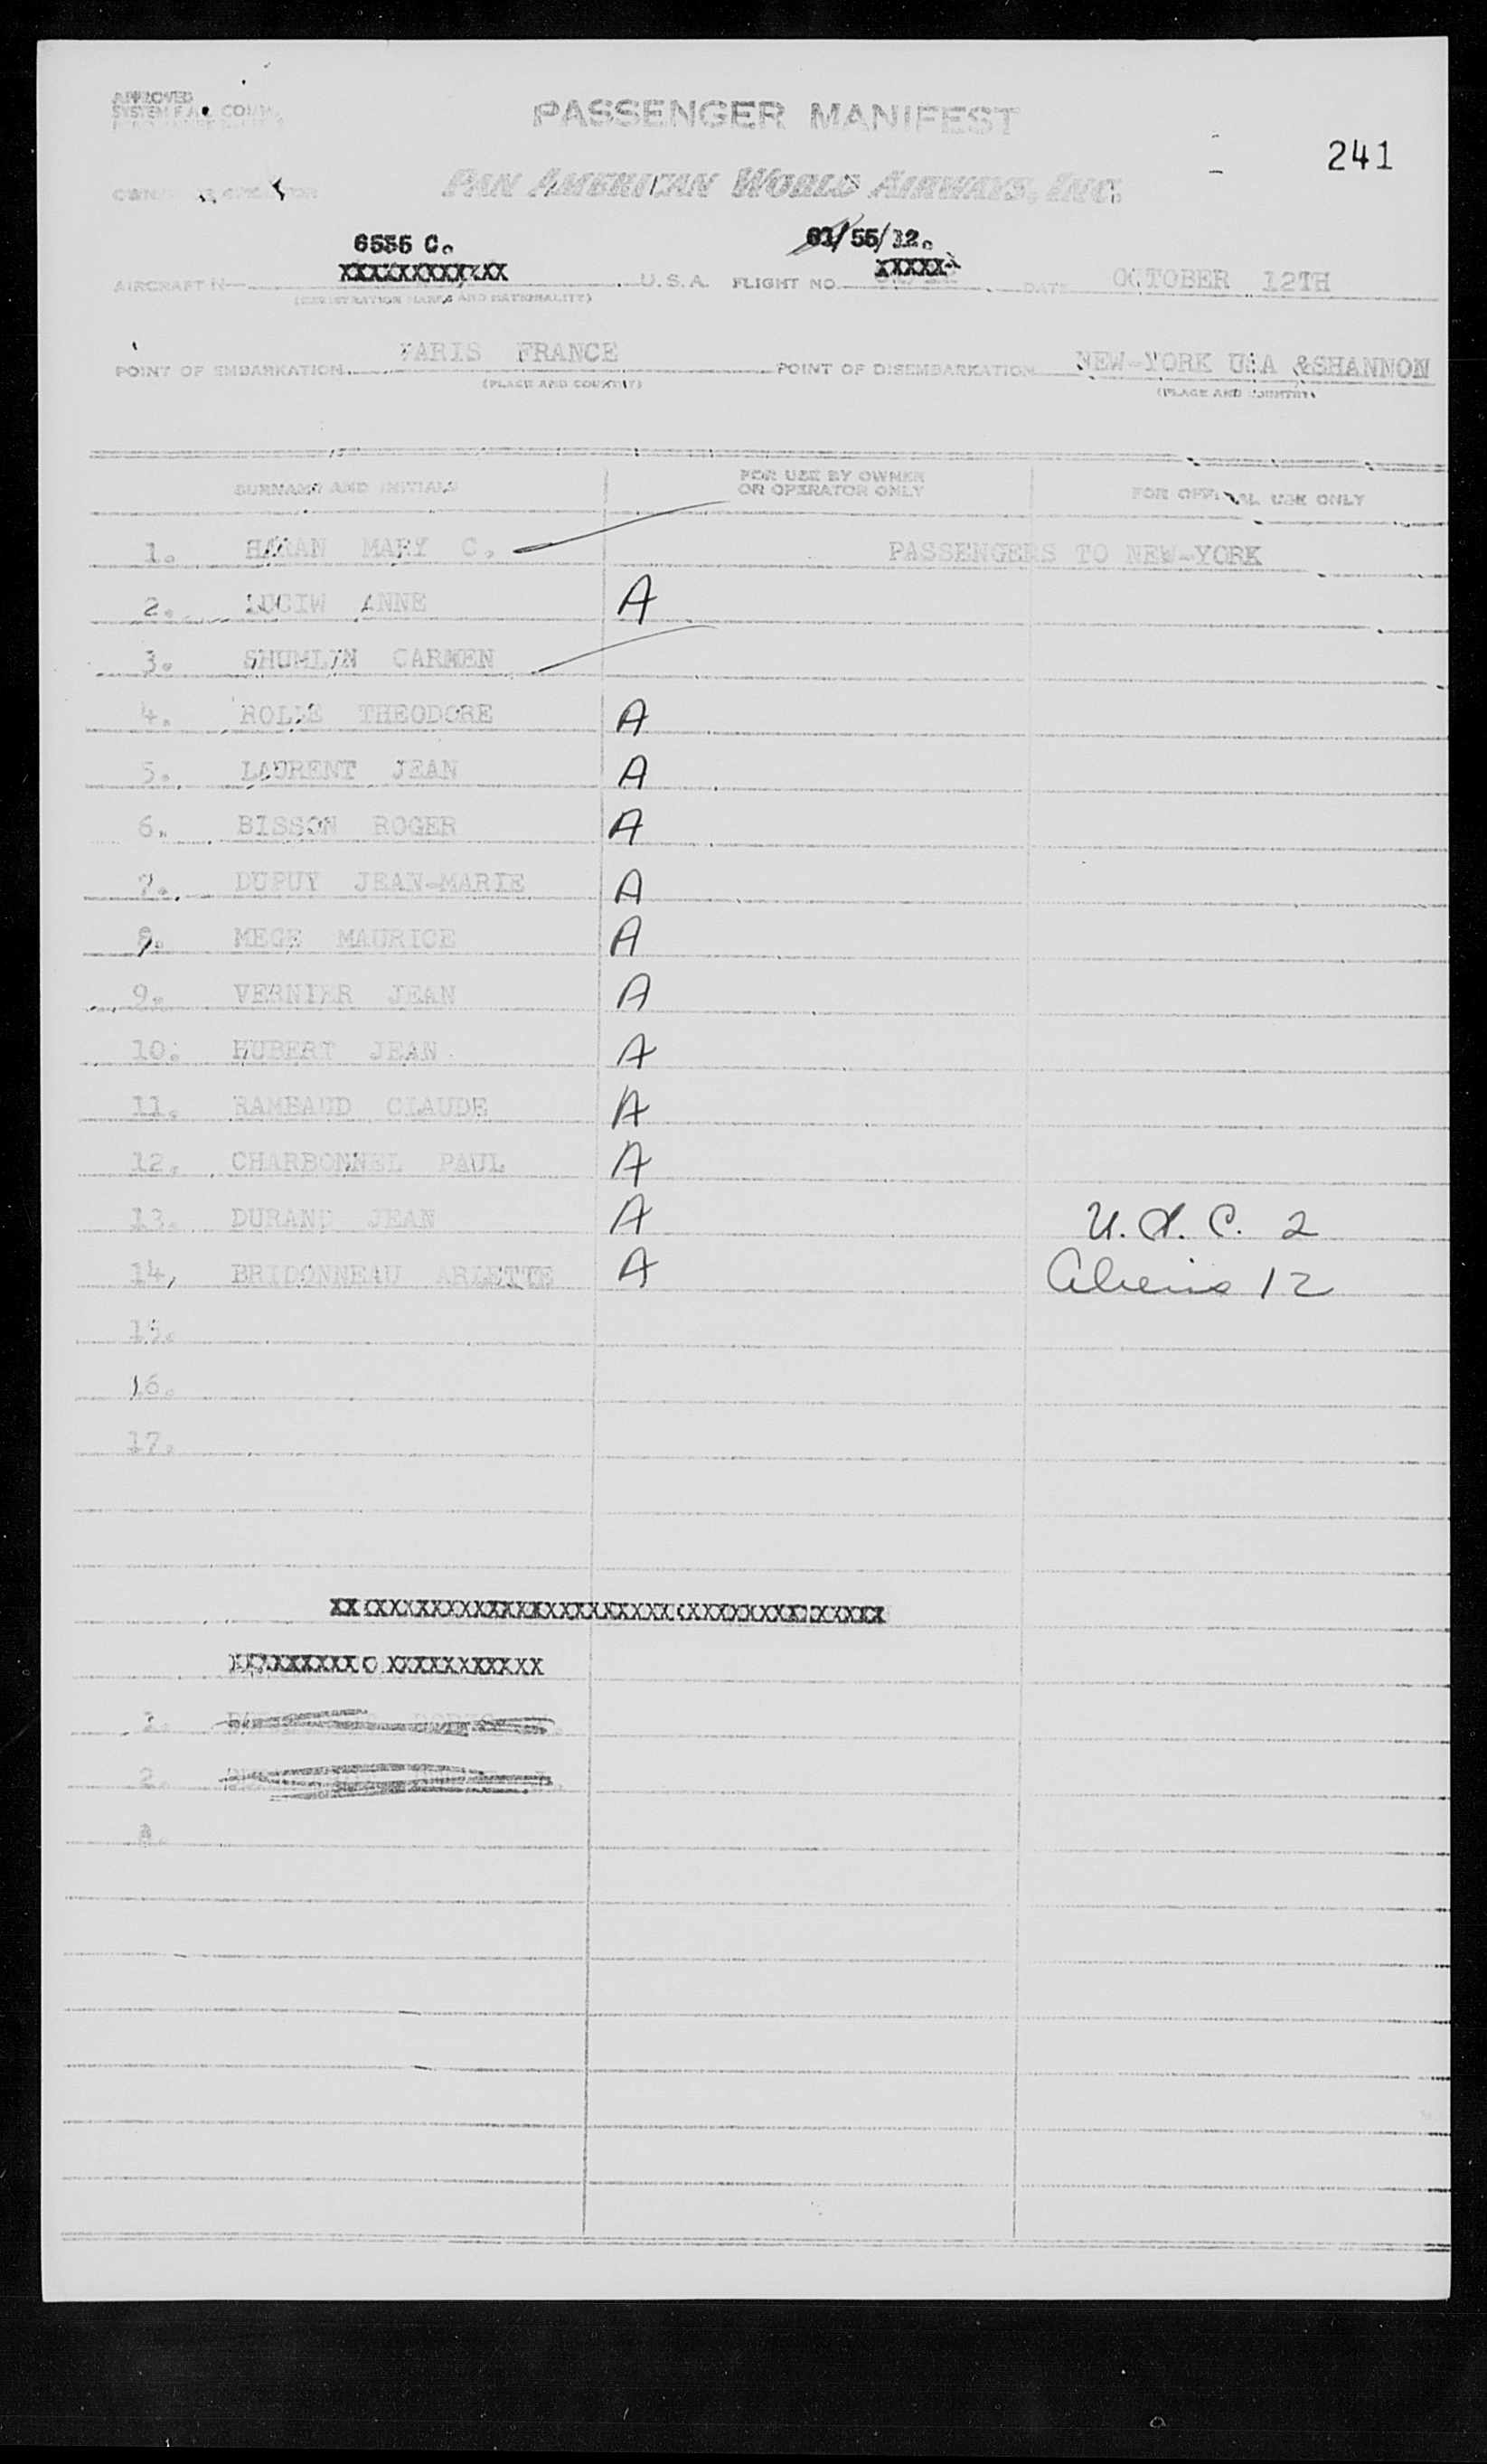 APPROVED
SYSTEM F.M. COMM.
PASSENGER MANIFEST
241
PAN AMERICAN WORLD AIRWAYS, INC.
OWNER OR OPERATOR
6535 C. 61/55/12.
XXXXXXXXXXXXX XXXXX
AIRCRAFT N U.S.A. FLIGHT NO. DATE OCTOBER 12TH
(REGISTRATION MARKS AND NATIONALITY)
POINT OF EMBARKATION PARIS FRANCE POINT OF DISEMBARKATION NEW-YORK USA &SHANNON
(PLACE AND COUNTRY) (PLACE AND COUNTRY)
SURNAME AND INITIALS FOR USE BY OWNER OR OPERATOR ONLY FOR OFFICIAL USE ONLY
1. HARAN MARY C. PASSENGERS TO NEW-YORK
2. LUCIW ANNE A
3. SHUMLYN CARMEN
4. ROLLE THEODORE A
5. LAURENT JEAN A
6. BISSON ROGER A
7. DUPUY JEAN-MARIE A
8. MEGE MAURICE A
9. VERNIER JEAN A
10. HUBERT JEAN A
11. RAMBAUD CLAUDE A
12. CHARBONNEL PAUL A
13. DURAND JEAN A U.S.C. 2
14. BRIDONNEAU ARLETTE A Aliens 12
15.
16.
17.
1.
2.